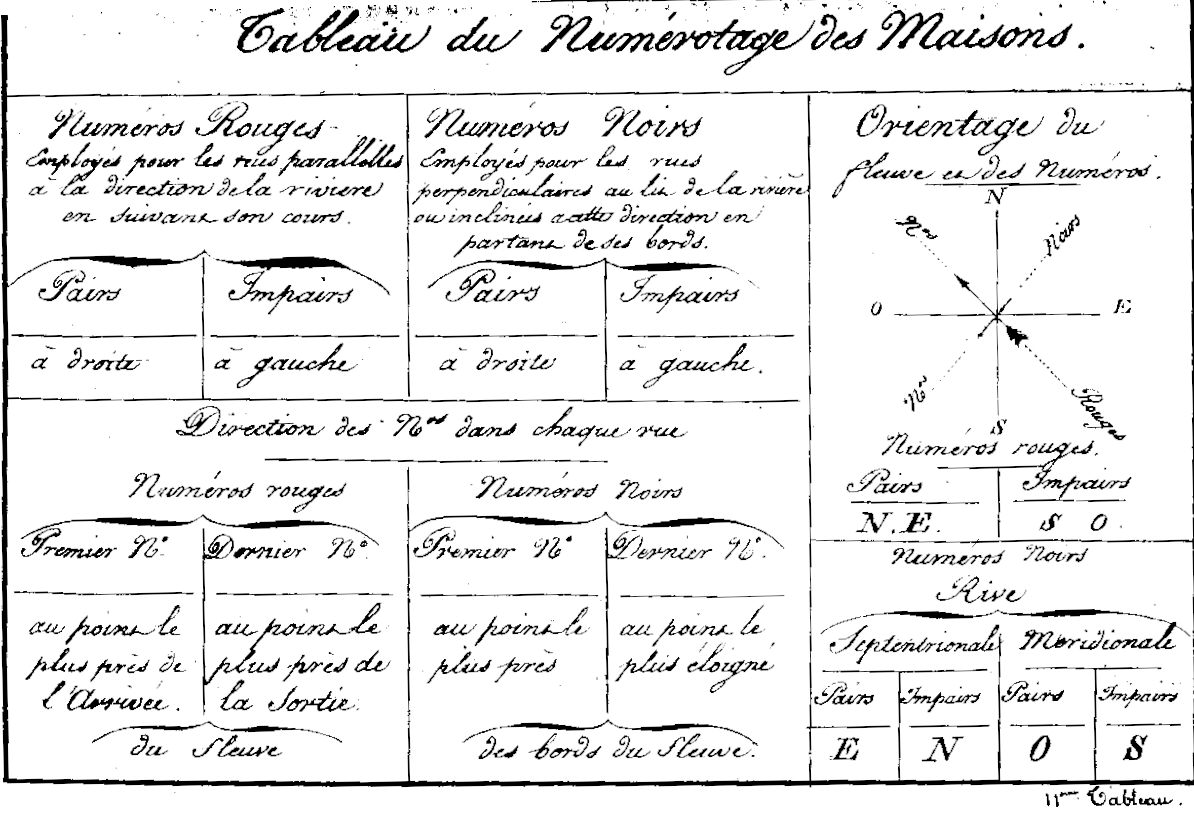 Tableau du Numérotage des Maisons.
Numéros Rouges
Employés pour les rues parallèlles
à la direction de la riviere
en suivant son cours.
Pairs
Impairs
à droite
à gauche
Numéros Noirs
Employés pour les rues
perpendiculaires au lit de la rivière
ou inclinées a cette direction en
partant de ses bords.
Pairs
Impairs
à droite
à gauche.
Direction des Nos dans chaque rue
Numéros rouges
Premier No.
Dernier No.
au point le
plus près de
l'Arrivée.
au point le
plus près de
la Sortie.
du fleuve
Numéros Noirs
Premier No
Dernier No.
au point le
plus près
au point le
plus éloigné
des bords du fleuve.
Orientage du
fleuve et des Numéros.
N
Nos
Noirs
O
E
Nos
Rouges
S
Numéros rouges.
Pairs
Impairs
N.E.
S O.
Numéros Noirs
Rive
Septentrionale
Méridionale
Pairs
Impairs
Pairs
Impairs
E
N
O
S
11me Tableau.